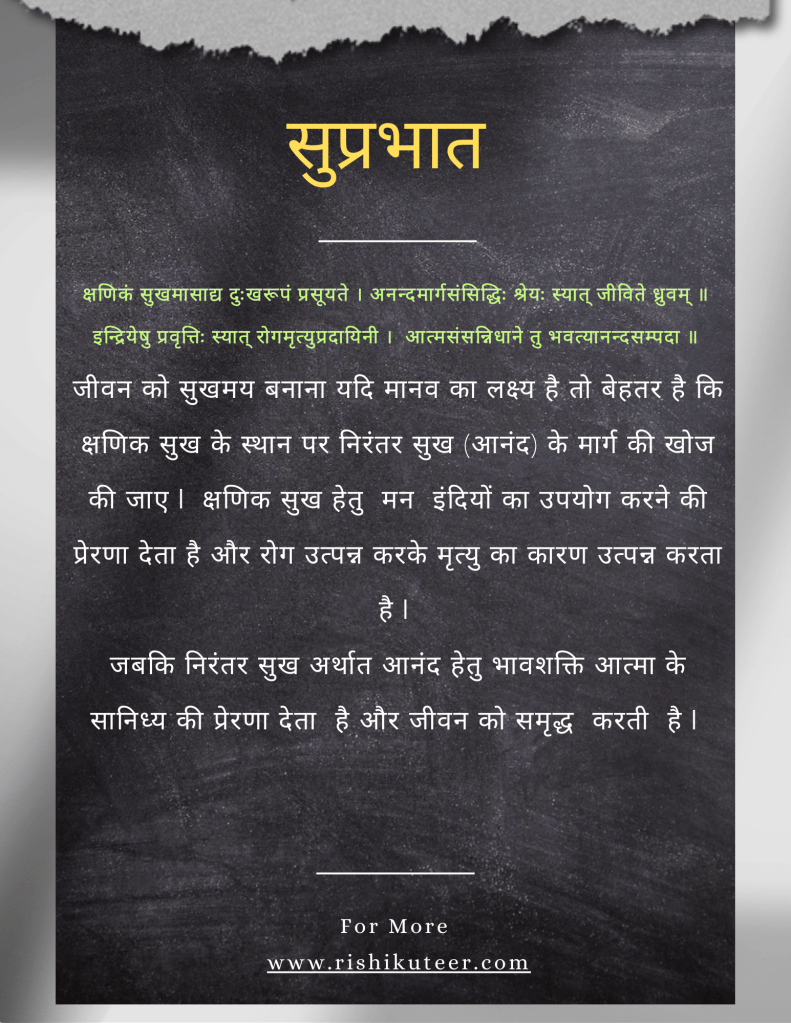 सुप्रभात
क्षणिकं सुखमासाद्य दुःखरूपं प्रसूयते । अनन्दमार्गसंसिद्धिः श्रेयः स्यात् जीविते ध्रुवम् ॥
इन्द्रियेषु प्रवृत्तिः स्यात् रोगमृत्युप्रदायिनी । आत्मसंसन्निधाने तु भवत्यानन्दसम्पदा ॥
जीवन को सुखमय बनाना यदि मानव का लक्ष्य है तो बेहतर है कि
क्षणिक सुख के स्थान पर निरंतर सुख (आनंद) के मार्ग की खोज
की जाए। क्षणिक सुख हेतु मन इंदियों का उपयोग करने की
प्रेरणा देता है और रोग उत्पन्न करके मृत्यु का कारण उत्पन्न करता
है।
जबकि निरंतर सुख अर्थात आनंद हेतु भावशक्ति आत्मा के
सानिध्य की प्रेरणा देता है और जीवन को समृद्ध करती है।
For More
www.rishikuteer.com